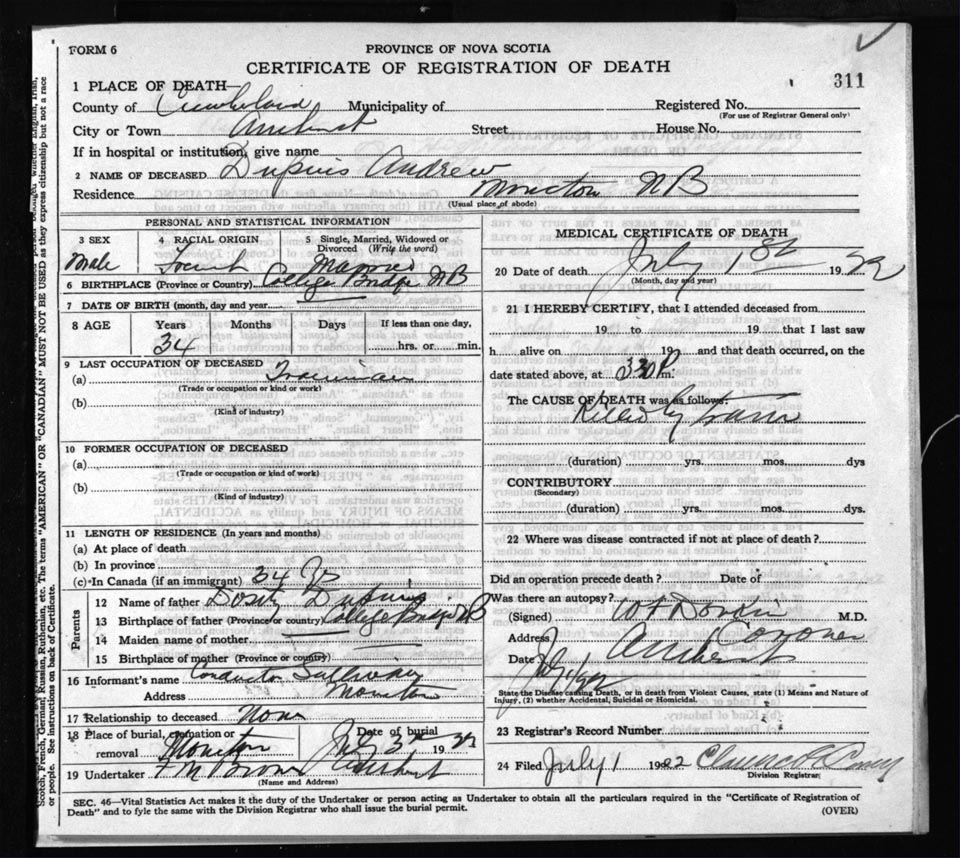 FORM 6
PROVINCE OF NOVA SCOTIA
CERTIFICATE OF REGISTRATION OF DEATH
311
1 PLACE OF DEATH—
County of Cumberland Municipality of Registered No.
(For use of Registrar General only)
City or Town Amherst Street House No.
If in hospital or institution, give name
2 NAME OF DECEASED Dupuis Andrew
Residence Moncton NB
(Usual place of abode)
PERSONAL AND STATISTICAL INFORMATION
3 SEX 4 RACIAL ORIGIN 5 Single, Married, Widowed or Divorced (Write the word)
Male French Married
6 BIRTHPLACE (Province or Country) College Bridge NB
7 DATE OF BIRTH (month, day and year)
8 AGE Years Months Days If less than one day,
34 hrs. or min.
9 LAST OCCUPATION OF DECEASED
(a) Trainman
(Trade or occupation or kind or work)
(b)
(Kind of industry)
10 FORMER OCCUPATION OF DECEASED
(a)
(Trade or occupation or kind of work)
(b)
(Kind of industry)
11 LENGTH OF RESIDENCE (In years and months)
(a) At place of death
(b) In province
(c) In Canada (if an immigrant) 34 Yrs
Parents
12 Name of father Dupuis
13 Birthplace of father (Province or country) College Bridge NB
14 Maiden name of mother
15 Birthplace of mother (Province or country)
16 Informant's name Conductor
Address Moncton
17 Relationship to deceased None
18 Place of burial, cremation or removal Moncton Date of burial July 3rd 1922
19 Undertaker F M Brown Amherst
(Name and Address)
MEDICAL CERTIFICATE OF DEATH
20 Date of death July 1st 1922
(Month, day and year)
21 I HEREBY CERTIFY, that I attended deceased from
19 to 19 that I last saw
h alive on 19 and that death occurred, on the
date stated above, at 3.30 P m.
The CAUSE OF DEATH was as follows:
Killed by train
(duration) yrs. mos. dys
CONTRIBUTORY
(Secondary)
(duration) yrs. mos. dys.
22 Where was disease contracted if not at place of death?
Did an operation precede death? Date of
Was there an autopsy?
(Signed) M.D.
Address Amherst Coroner
Date July 1/22
State the Disease causing Death, or in death from Violent Causes, state (1) Means and Nature of
Injury, (2) whether Accidental, Suicidal or Homicidal.
23 Registrar's Record Number
24 Filed July 1 1922
Division Registrar
SEC. 46—Vital Statistics Act makes it the duty of the Undertaker or person acting as Undertaker to obtain all the particulars required in the "Certificate of Registration of
Death" and to fyle the same with the Division Registrar who shall issue the burial permit.
(OVER)
Scotch, French, German, Russian, Ruthenian, etc. The terms "AMERICAN" OR "CANADIAN" MUST NOT BE USED as they express citizenship but not a race
or people. See instructions on back of Certificate.